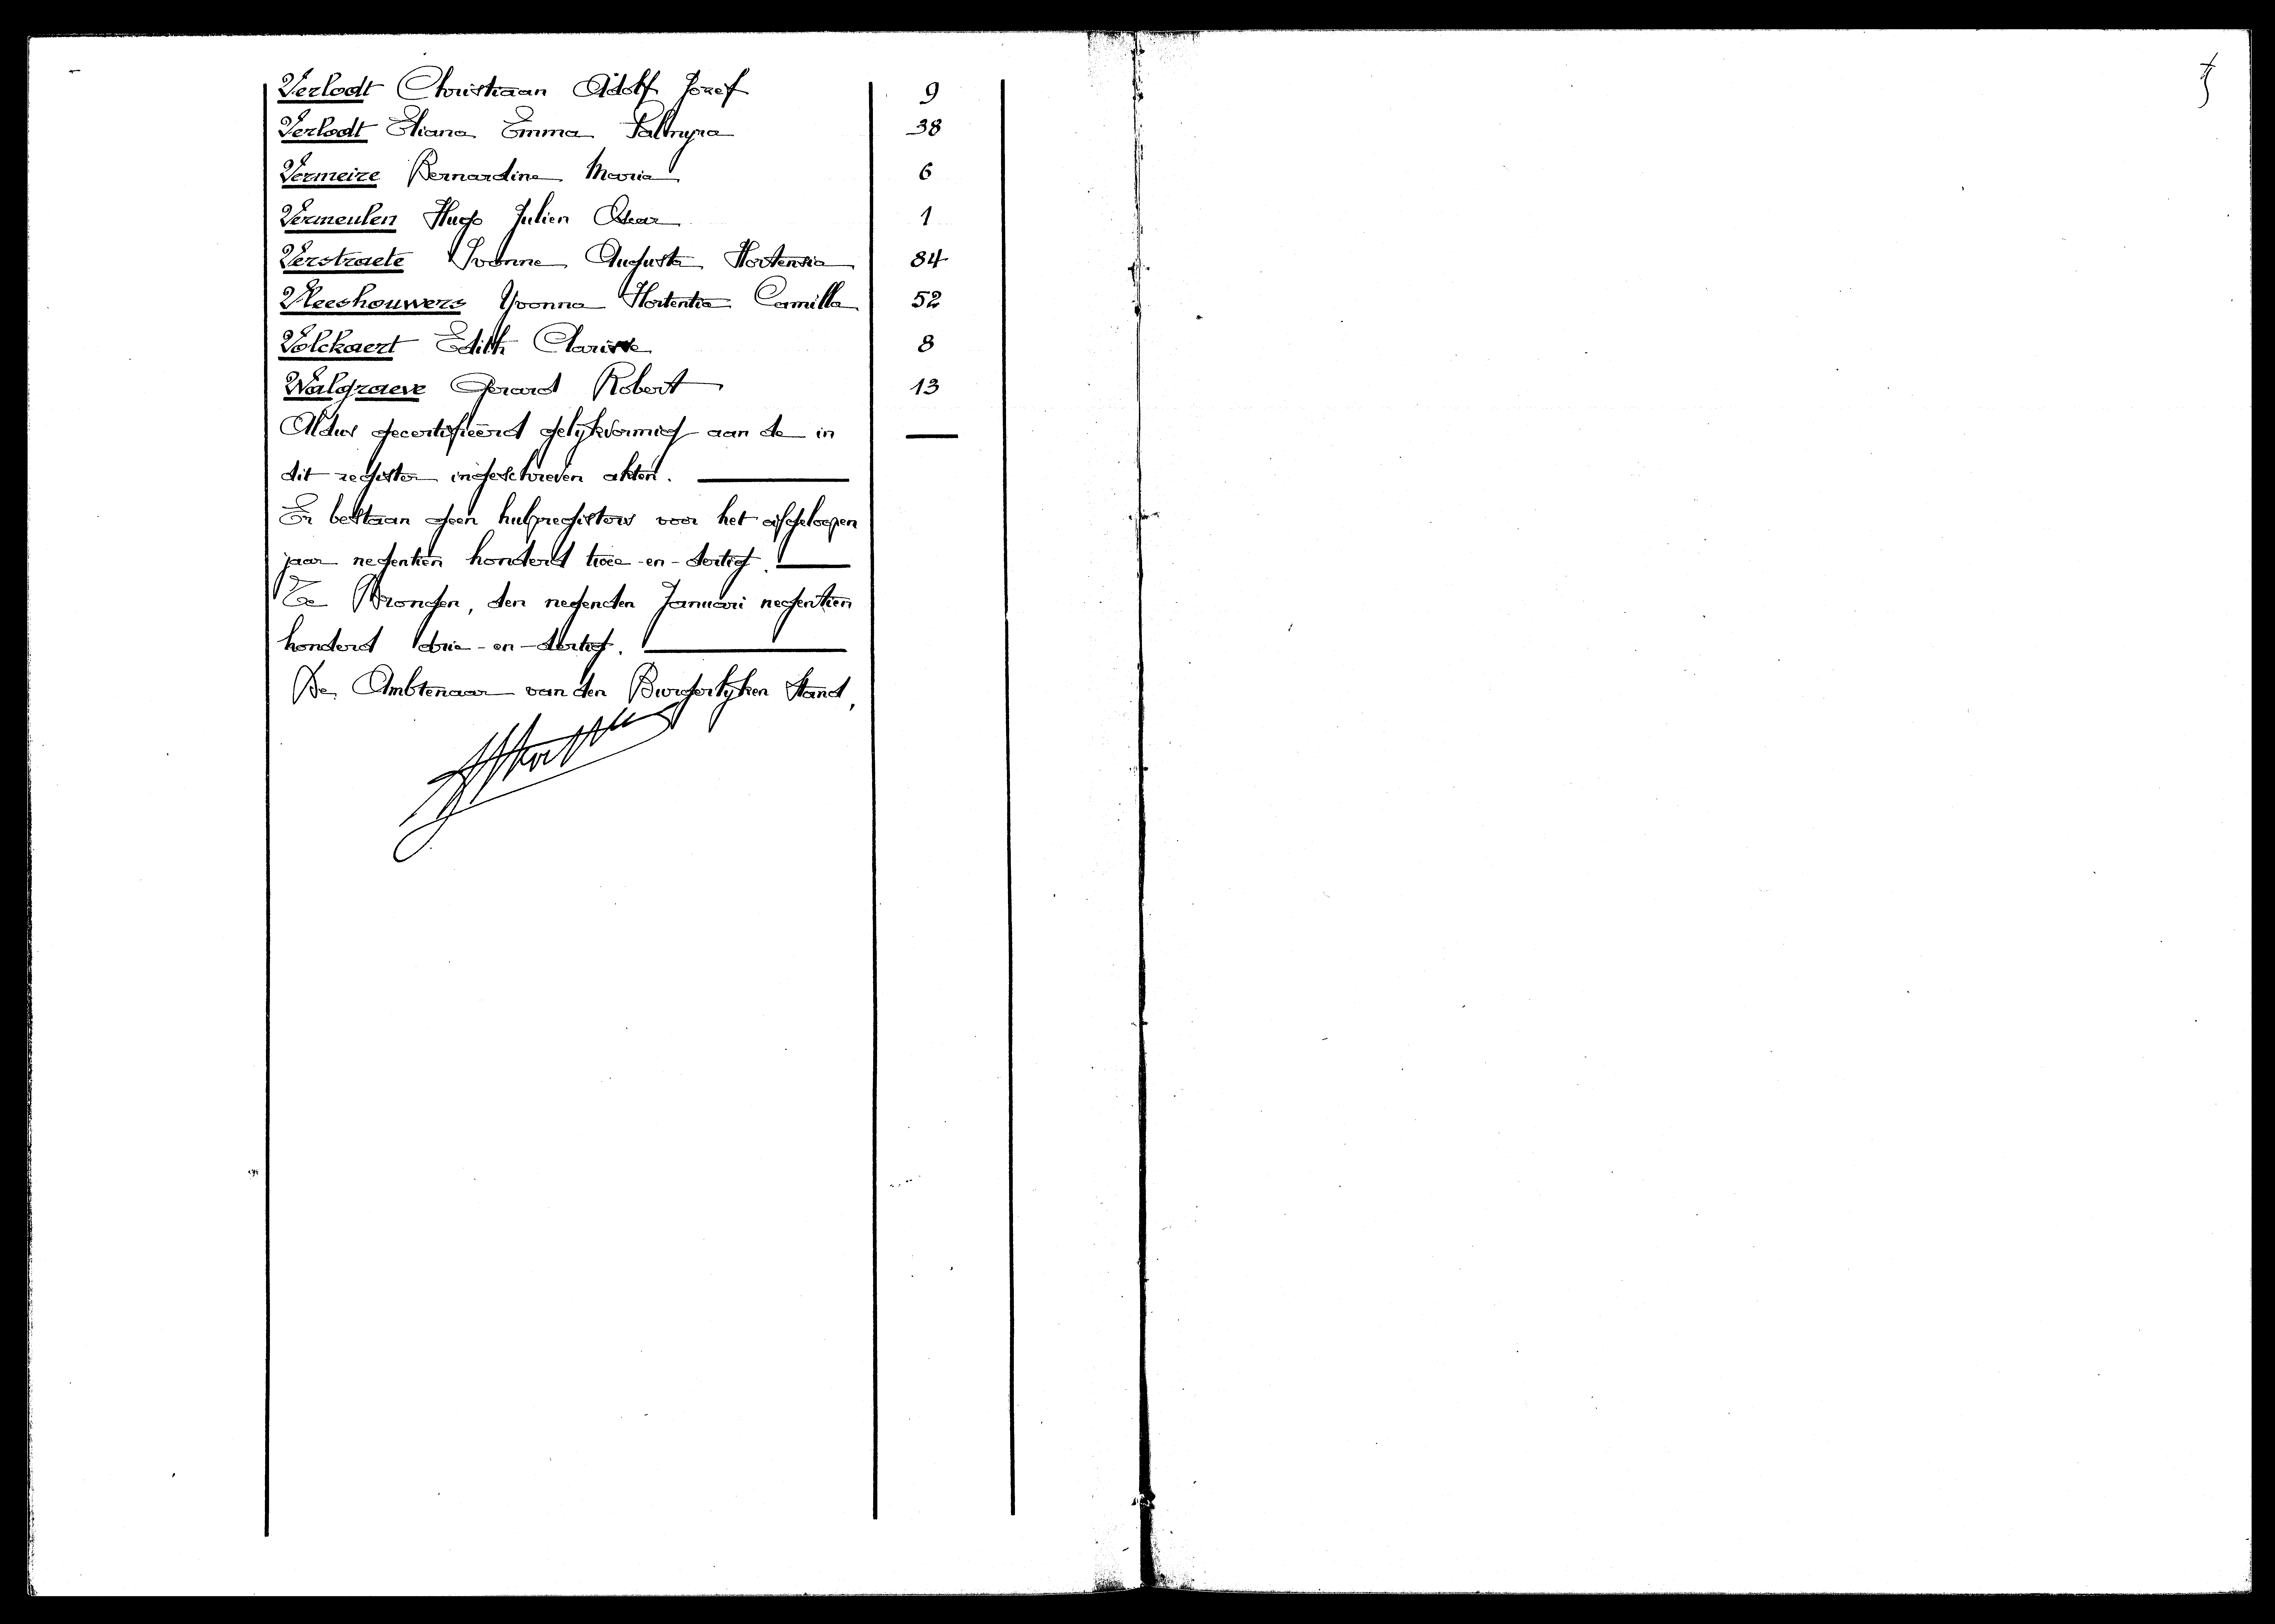 Verlodt Christiaan Adolf Jozef 9
Verlodt Eliana Emma Palmyra 38
Vermeire Bernardine Maria 6
Vermeulen Hugo Julien Oscar 1
Verstraete Ivonne Augusta Hortensia 84
Vleeshouwers Yvonna Hortentia Camilla 52
Volckaert Edith Clarisse 8
Walgraeve Gerard Robert 13
Aldus gecertifieerd gelijkvormig aan de in
dit register ingeschreven akten.
Er bestaan geen hulpregisters voor het afgeloopen
jaar negentien honderd twee-en-dertig.
Te Drongen, den negenden Januari negentien
honderd drie-en-dertig.
De Ambtenaar van den Burgerlijken Stand,